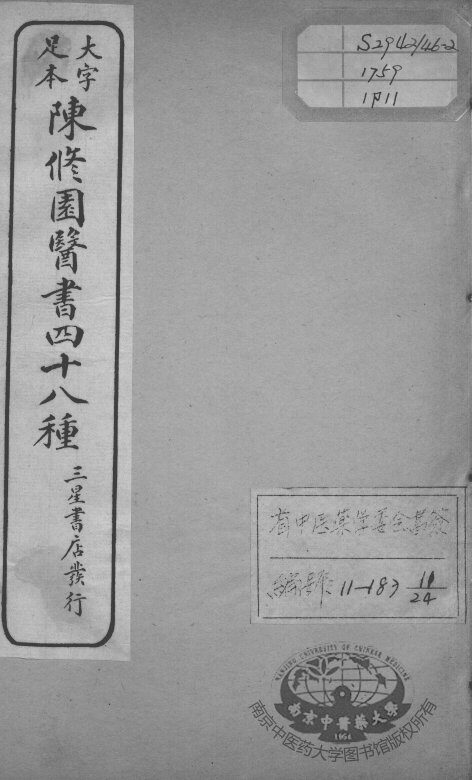 大字
足本
陳修園醫書四十八種
三星書店發行
S2942/46-2
1759
1P11
編號 11-183 11/24
NANJING UNIVERSITY OF CHINESE MEDICINE
南京中醫藥大學
1954
南京中医药大学图书馆版权所有